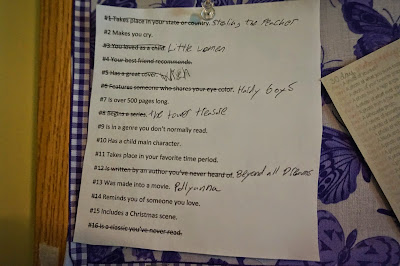 #1 Takes place in your state or country. Stealing the Preacher
#2 Makes you cry.
#3 You loved as a child. Little Women
#4 Your best friend recommends.
#5 Has a great cover.
#6 Features someone who shares your eye color. Hardy boys
#7 Is over 500 pages long.
#8 Begins a series. The Tower Treasure
#9 Is in a genre you don't normally read.
#10 Has a child main character.
#11 Takes place in your favorite time period.
#12 Is written by an author you've never heard of. Beyond all Dreams
#13 Was made into a movie. Pollyanna
#14 Reminds you of someone you love.
#15 Includes a Christmas scene.
#16 Is a classic you've never read.